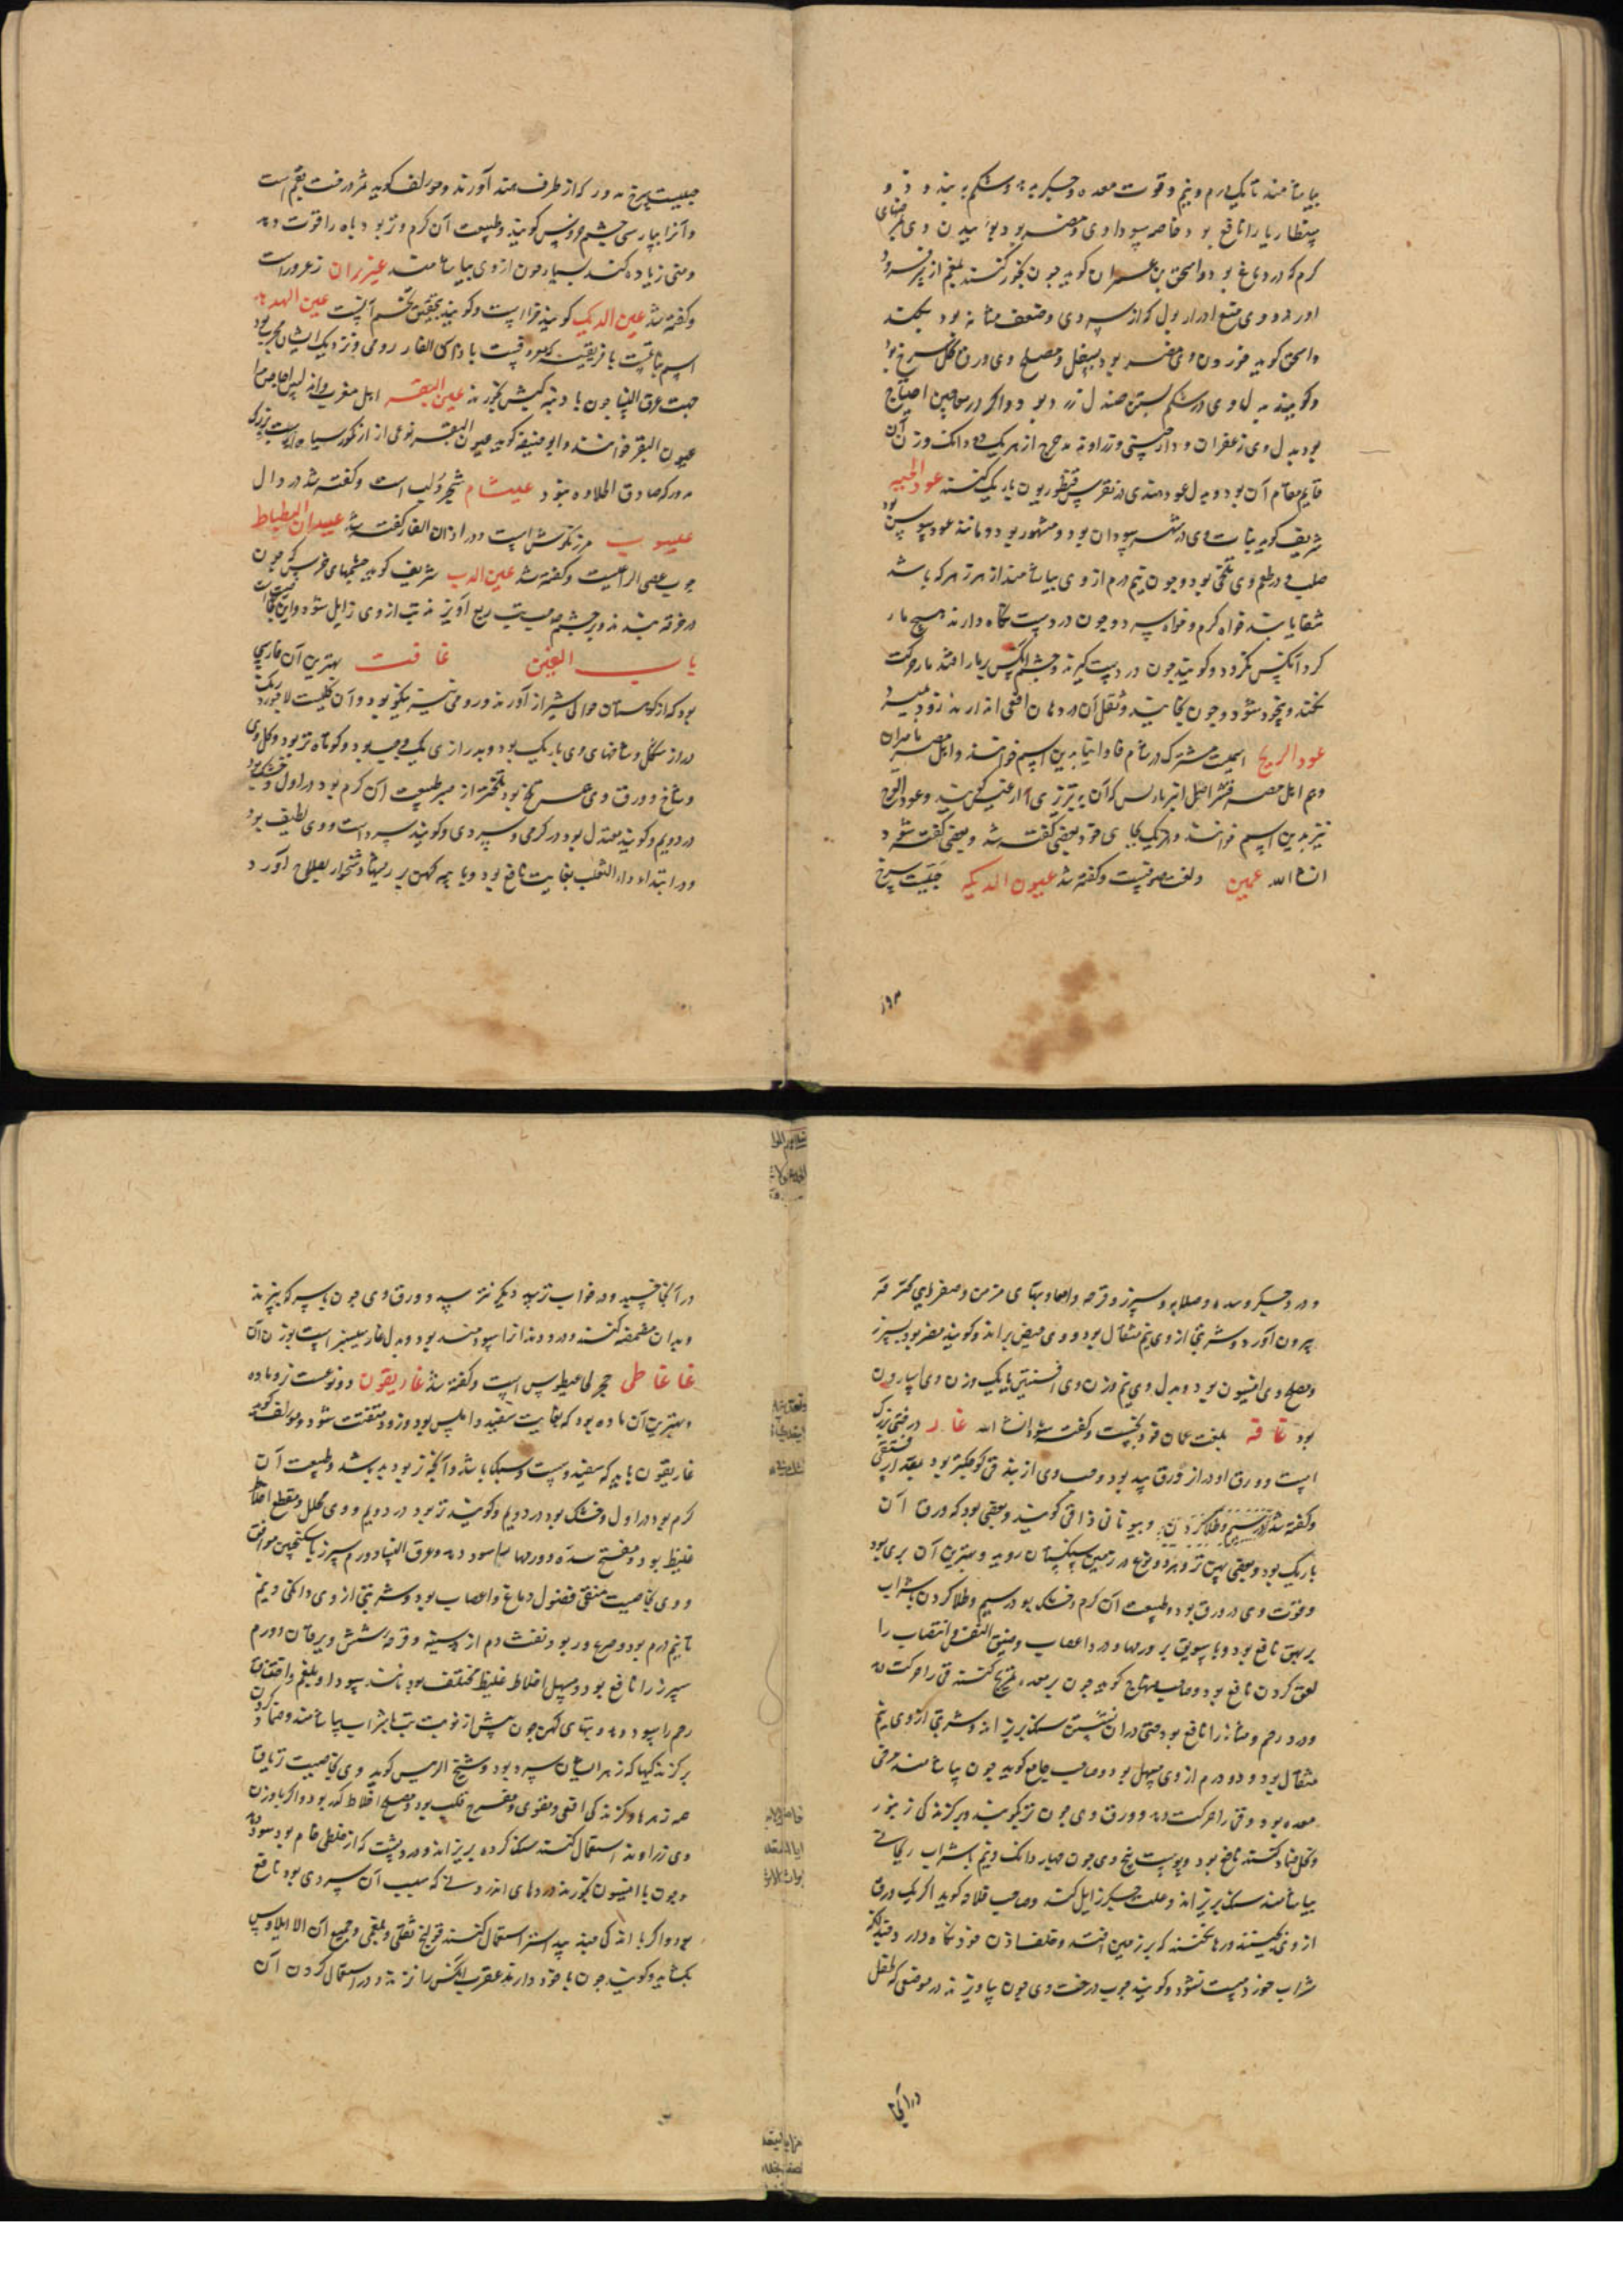 بیاشامند تا یک درم و نیم و قوت معده و جگر بدهد و شکم ببندد و
سنطاریا را نافع بود خاصه سوداوی و مضر بود بوئیدن وی
کرم که در دماغ بود و اسحق بن عمران کوید چون بخور کنند بلغم از سر فرود
اورد و وی منع ادرار بول که از سردی و ضعف مثانه بود بکند
و اسحق کوید خوردن وی مضر بود بسفل و مصلح وی ورق کل سرخ بود
و کویند بدل وی در شکم بستن صندل زرد بود و اگر در معاجین احتیاج
بود بدل وی زعفران و دارچینی و زراوند مدحرج از هر یک دو دانک وزن آن
قایم مقام آن بود و بدل عود هندی در نقرس قنطوریون باریک کنند عود الحیه
شریف کوید نباتست وی در شهر سودان بود و مشهور بود و مانند عود سوسن بود
صلب و در طعم وی تلخی بود و چون نیم درم از وی بیاشامند از هر زهر که باشد
شفا یابند خواه کرم و خواه سرد و چون در دست نکاه دارند هیچ مار
کرد آنکس نکردد و کویند چون در دست کیرند و چشم آنکس بر مار افتد مار حرکت
نکند و بیخود شود و چون بخایند و ثفل آن در دهان افعی اندازند زود بمیرد
عود الریح اسمیست مشترک در شام فاوانیا بدین اسم خوانند و اهل مصر مامیران
و هم اهل مصر قشر اصل انبرباریس که آن بتبریزی آرغیس کویند و عود الوج
نیز بدین اسم خوانند و هر یک بجای خود بعضی کفته شد و بعضی کفته شود
انشاالله عیین ولف صوفیست و کفته شد عیون الدیکه حبیست سرخ
حبیست سرخ مدور که از طرف هند آورند و مولف کوید ثمر درخت بقم است
و آنرا بپارسی چشم خروس کویند و طبیعت آن کرم و تر بود و باه را قوت دهد
و منی زیاده کند بسیار چون از وی بیاشامند عیزران زعرورست
و کفته شد عین الدیک کویند قراراست و کویند بتحقیق تخم آنست عین الهدهد
اسم نباتیست بافریقیه که معروفست باذان الفار رومی و نزدیک ایشان مجرب بود
جهت عرق النسا چون با دنبه کبش بخورند عین البقر اهل مغرب و اندلس اجاص را
عیون البقر خوانند و ابو حنیفه کوید عیون البقر نوعی از انکور سیاه است بزرک
مدور که صادق الحلاوه نبود عیشام شجر دلب است و کفته شد در دال
عیسوب مرزنکوش است و در اذان الفار کفته شد عیدان البطباط
چوب عصی الراعیست و کفته شد عین الدب شریف کوید چشمهای خرس که چون
در خرقه بندند و بر چشم صاحب تب ربع آویزند تب از وی زایل شود و این خاصیت
باب الغین غافت بهترین آن فارسی
بود که از کوهستان حوالی شیراز آورند و رومی نیز نیکو بود و آن کلیست لاجورد رنک
دراز شکل و شاخهای وی باریک بود و بدرازی یک وجب بود و کوتاه تر بود و کل وی
و شاخ و ورق وی همه تلخ بود تلخ‌تر از صبر طبیعت آن کرم بود در اول و خشک بود
در دویم و کویند معتدل بود در کرمی و سردی و کویند سرد است و وی لطیف بود
و در ابتداء داء الثعلب بغایت نافع بود و با پیه کهن بر ریشها دشخوار بصلاح آورد
و درد جگر و سده و صلابه و سپرز و قرحه امعا و تبهای مزمن و صفرای محترقه
بیرون آورد و شربتی از وی نیم مثقال بود و وی حیض براند و کویند مضر بود بسپرز
و مصلح وی انیسون بود و بدل وی نیم وزن وی افسنتین یا یک وزن وی اسارون
بود غافه بلغت عمان فودنجست و کفته شود انشاالله غار درختی بزرک
است و ورق او دراز ورق بید بود و حب وی از بندق کوچکتر بود بمقدار فستقی
و کفته شد و بیونانی ذافنی کویند و بعضی بود که ورق آن
باریک بود و بعضی پهن‌تر و هر دو نوع در زمین سنکستان روید و بهترین آن بری بود
و قوت وی در ورق بود و طبیعت آن کرم و خشک بود در سیم و طلا کردن با شراب
بر بهق نافع بود و با سویق بر ورمها و درد اعصاب و ضیق النفس و انتصاب را
لعق کردن نافع بود و صاحب منهاج کوید چون بر معده تمریخ کنند قی را حرکت دهد
و درد رحم و مثانه را نافع بود حتی در آن نشستن سنک بریزاند و شربتی از وی نیم
مثقال بود و دو درم از وی مسهل بود و صاحب جامع کوید چون بیاشامند مرخی
معده بود و قی را حرکت دهد و ورق وی چون تر بکوبند و بر کزندکی زنبور
و نحل ضماد کنند نافع بود و پوست بیخ وی چون چهار دانک و نیم با شراب ریحانی
بیاشامند سنک بریزاند و علت جگر زایل کند و صاحب فلاحه کوید اکر یک ورق
از وی بکیرند و رها نکنند که بر زمین افتد و خلف اذن خود نکاه دارد و چندانکه
شراب خورد مست نشود و کویند چوب درخت وی چون بیاویزند در موضعی که طفل
درانجا
در آنجا خسپد و در خواب ترسد دیگر نترسد و ورق وی چون با سرکه بپزند
و بدان مضمضه کنند درد دندانرا سودمند بود و بدل غار سیسنبر است بوزن آن
غاغاطی حجر لی غیطوس است و کفته شد غاریقون دو نوعست نر و ماده
و بهترین آن ماده بود که بغایت سفید و املس بود و زود متفتت شود و مولف کوید
غاریقون باید که سفید و سست و سبک باشد و آنچه نر بود بد باشد و طبیعت آن
کرم بود در اول و خشک بود در دویم و کویند تر بود در دویم و وی محلل و مقطع اخلاط
غلیظ بود و مفتح سده و ورمها سود دهد و عرق النسا و ورم سپرز با سکنجبین موافق
و وی بخاصیت منقی فضول دماغ و اعصاب بود و شربتی از وی دانکی و نیم
تا نیم درم بود و صرع و ربو و نفث دم از سینه و قرحه شش و یرقان و ورم
سپرز را نافع بود و مسهل اخلاط غلیظ مختلف بود مانند سودا و بلغم و اختناق
رحم را سود دهد و تبهای کهن چون پیش از نوبت تب با شراب بیاشامند و ضماد کردن
بر کزندکیها که زهر ایشان سرد بود و شیخ الرئیس کوید وی بخاصیت تریاق
همه زهرها و کزندکی افعی و مقوی و مفرح قلب بود و مسهل اخلاط کدر بود و اکر با وزن
وی زراوند استعمال کنند سنک کرده بریزاند و درد پشت که از خلطی خام بود سود دهد
و چون با انیسون بخورند دردهای اندرونی که سبب آن سردی بود نافع
بود و اکر با اندکی جندبیدستر استعمال کنند قولنج ثفلی و بلغمی و جمیع آن الا ایلاوس
بکشاید و کویند چون با خود دارند عقرب آنکس را نزند و در استعمال کردن آن